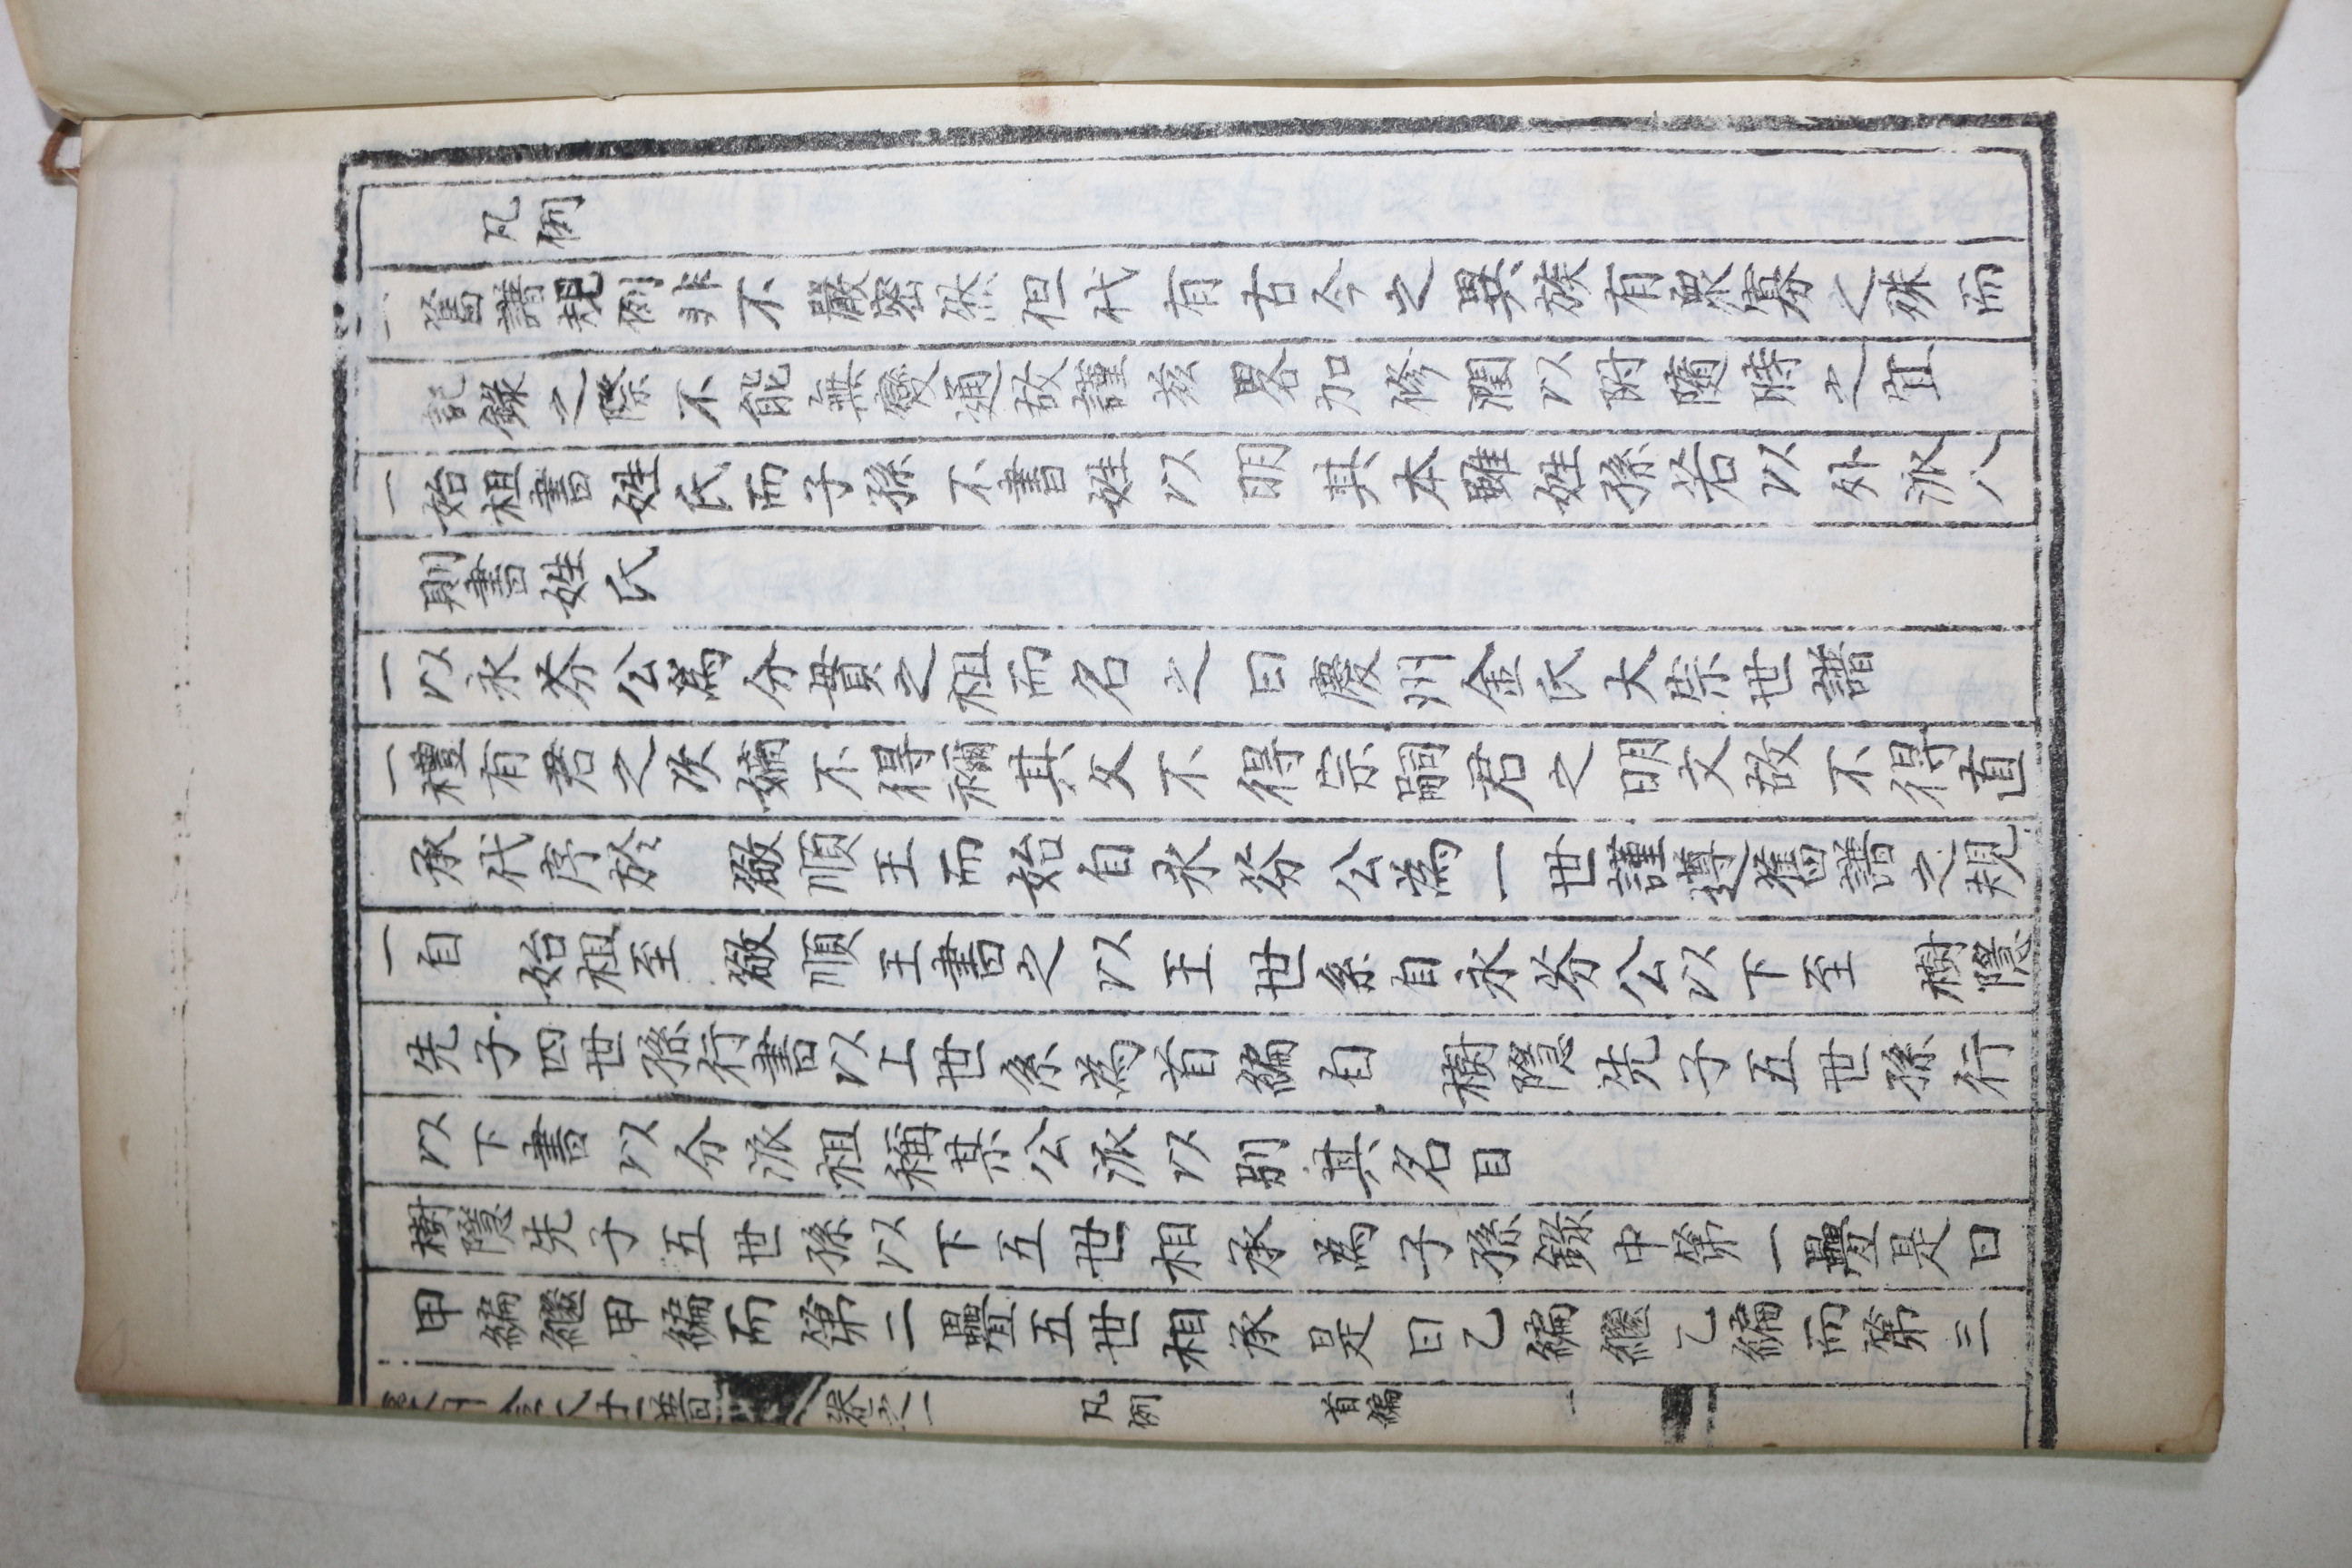 凡例
一舊譜規例非不嚴密然但代有古今之異族有衆寡之殊而
記錄之際不能無變通故謹玆畧加修潤以附隨時之宜
一始祖書姓氏而子孫不書姓以明其本雖姓孫若以外派八
則書姓氏
一以永芬公爲分貫之祖而名之曰慶州金氏大宗世譜
一禮有君之次嫡不得禰其父不得宗嗣君之明文故不得直
承代序於 敬順王而始自永芬公為一世謹遵舊譜之規
一自 始祖至 敬順王書之以王世系自永芬公以下至 樹隱
先子四世孫行書以上世系為首編自 樹隱先子五世孫行
以下書以分派祖稱某公派以別其名目
樹隱先子五世孫以下五世相承為子孫錄中第一疊是曰
甲編繼甲編而第二疊五世相承是曰乙編繼乙編而第三
金大宗譜 卷之一 凡例 首編 一